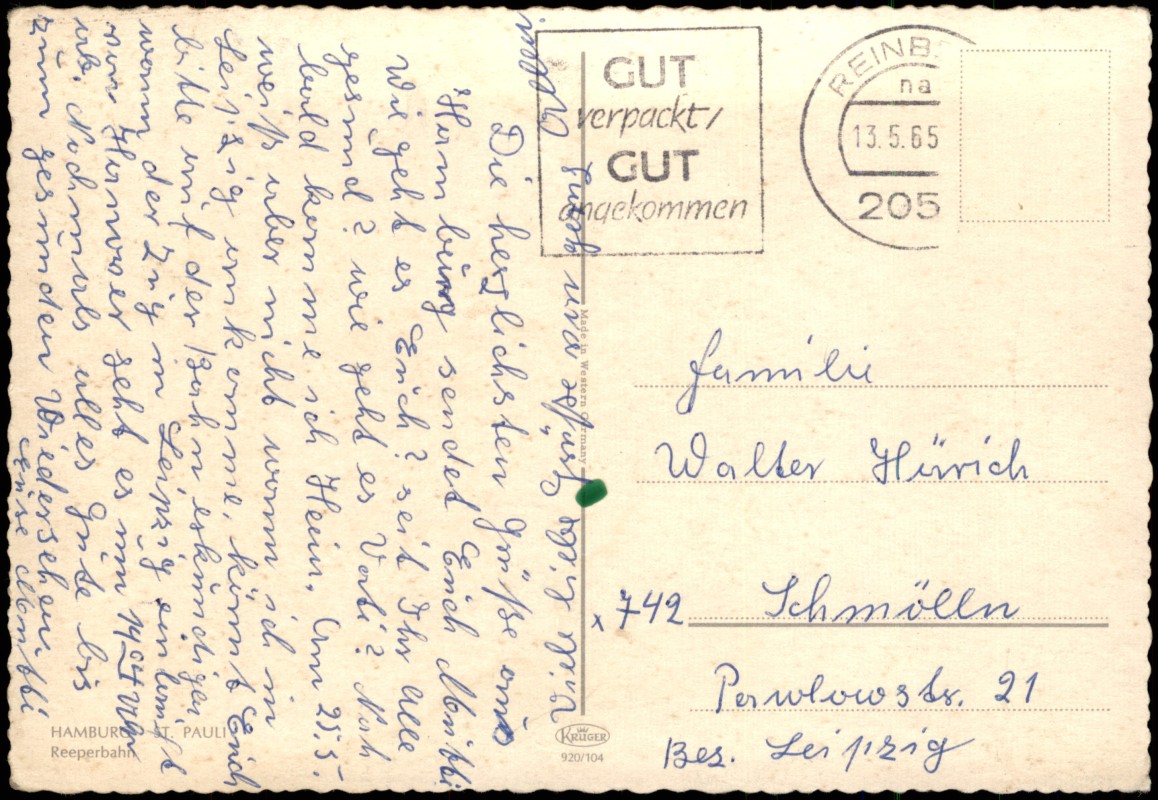 Die herzlichsten Grüße aus
Hamburg sendet Euch Mutti
Wie geht es Euch? seit Ihr alle
gesund? wie geht es Vati? Nun
bald komme ich Heim. Am 25.5.
weiß aber nicht wann ich in
Leipzig ankomme, könnt Euch
bitte auf der Bahn erkundigen
wann der Zug in Leipzig
von Hannover geht es um
Nochmals alles Gute bis
zum gesunden Wiedersehen.
Eure Mutti
Viele liebe Grüße von
GUT
verpackt/
GUT
angekommen
REINB
na
13.5.65
205
Made in Western Germany
Familie
Walter Hürich
x 742 Schmölln
Pawlowstr. 21
Bez. Leipzig
HAMBURG - ST. PAULI
Reeperbahn
KRÜGER
920/104